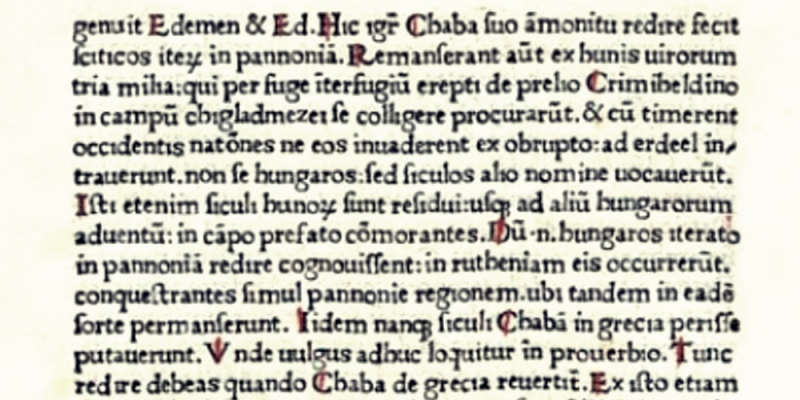 genuit Edemen & Ed. Hic igr̄ Chaba suo āmonitu redire fecit
sciticos iteꝝ in pannoniā. Remanserant aūt ex hunis uirorum
tria milia: qui per fuge īterfugiū erepti de prelio Crimiheldino
in campū chigladmezei se colligere procurarūt. & cū timerent
occidentis natōnes ne eos inuaderent ex obrupto: ad erdeel in,
trauerunt. non se hungaros: sed siculos alio nomine uocauerūt.
Isti etenim siculi hunoꝝ sunt residui: usqꝫ ad aliū hungarorum
aduentū: in cāpo prefato cōmorantes. Dū .n. hungaros iterato
in pannoniā redire cognouissent: in rutheniam eis occurrerūt.
conquestrantes simul pannonie regionem. ubi tandem in eadē
sorte permanserunt. Iidem nanqꝫ siculi Chabā in grecia perisse
putauerunt. Vnde uulgus adhuc loquitur in prouerbio. Tunc
redire debeas quando Chaba de grecia reuertit̄. Ex isto etiam